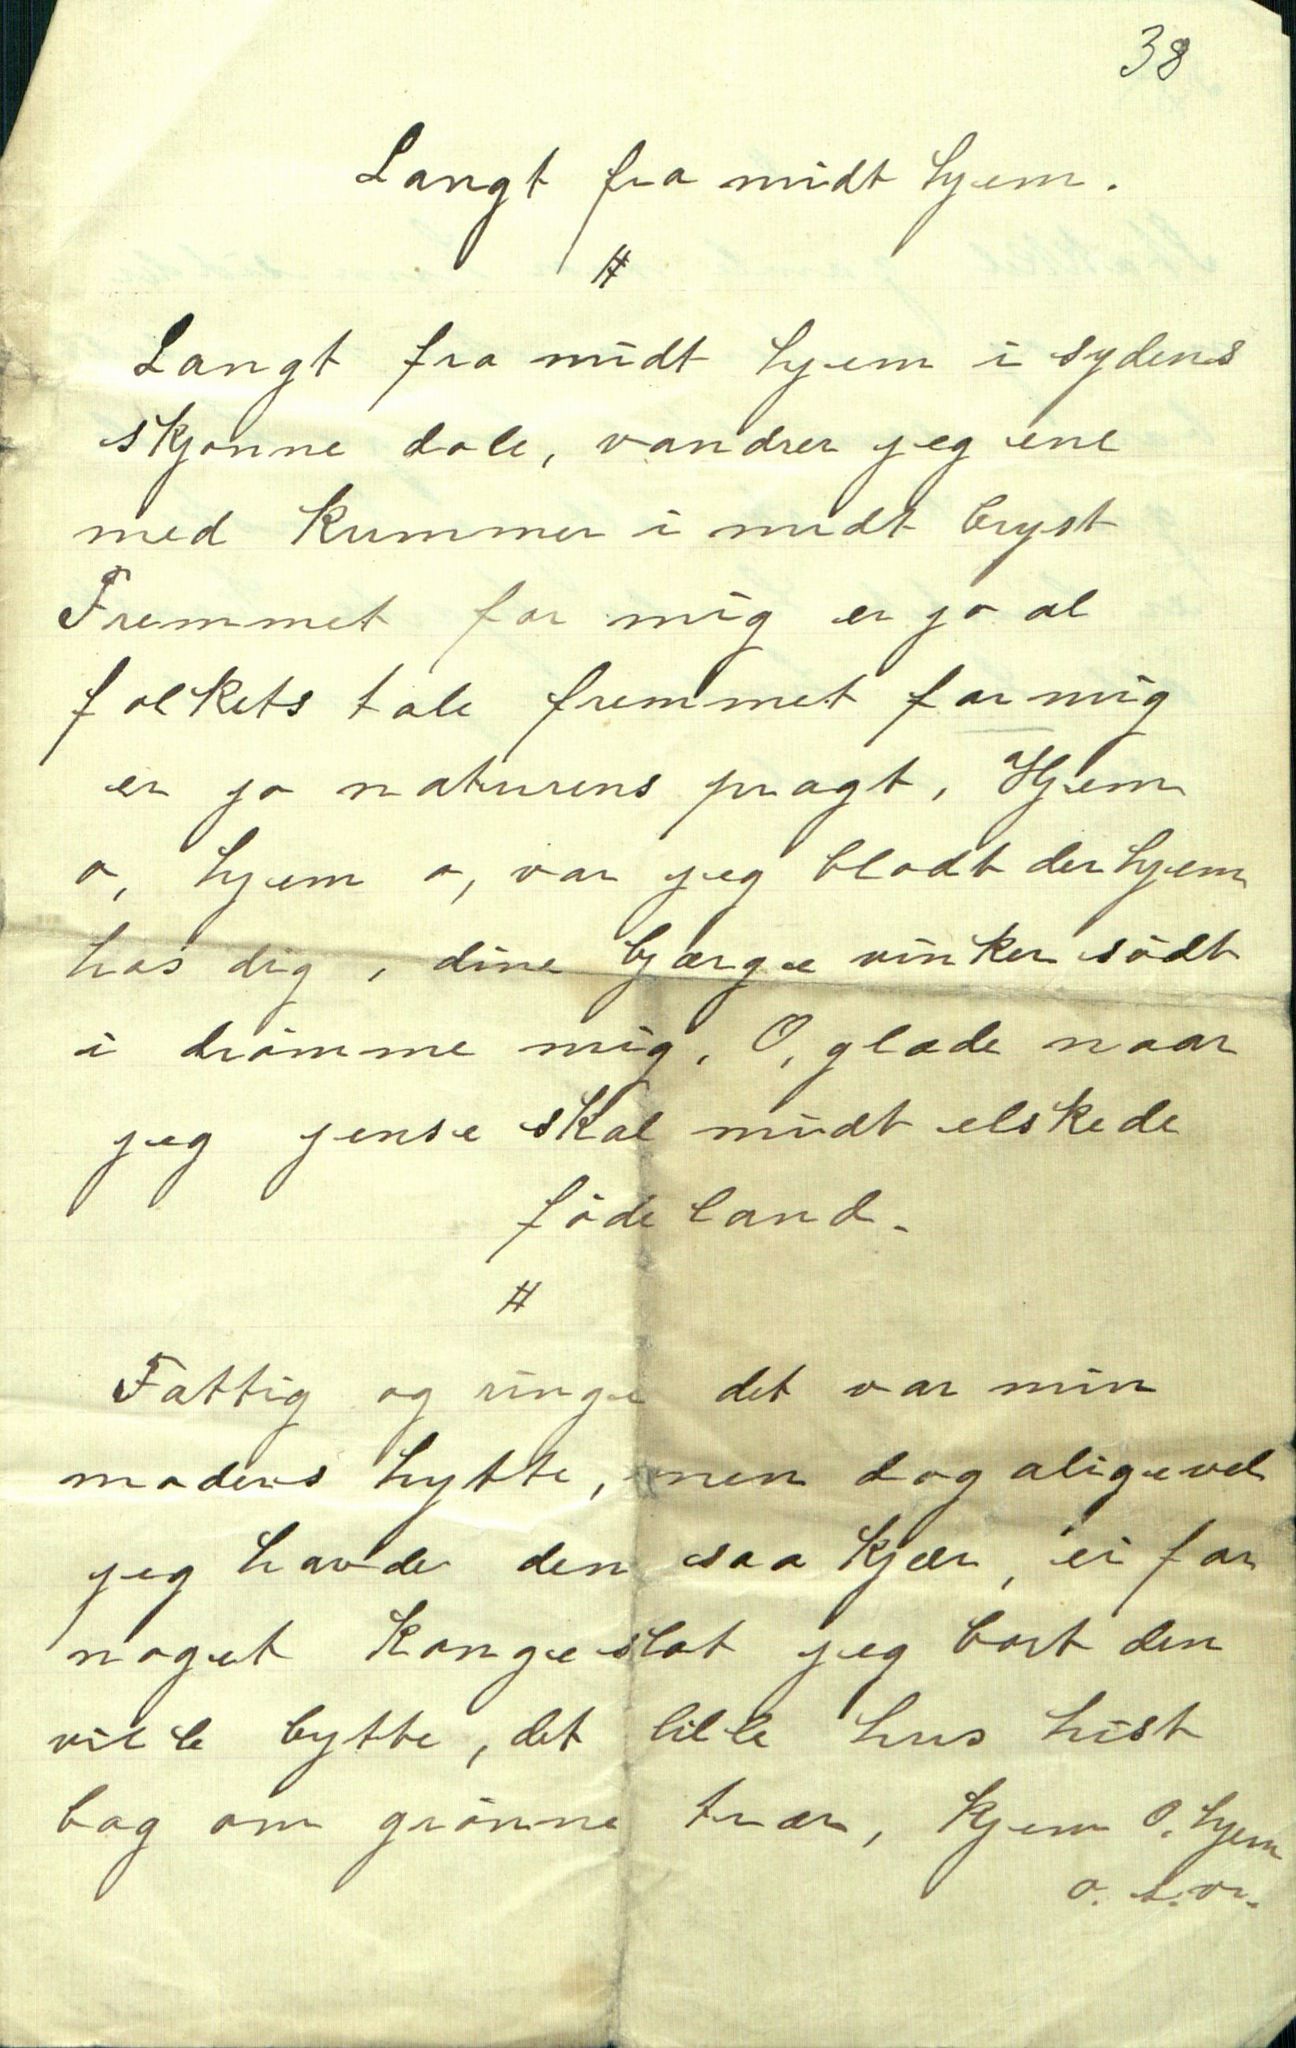 38
Langt fra midt hjem.
#
Langt fra midt hjem i sydens
skjønne dale, vandrer jeg ene
med kummer i midt bryst
Fremmet for mig er jo al
folkets tale fremmet for mig
er jo naturens pragt, Hjem
o, hjem o, var jeg blodt der hjem
hos dig, dine bjærge vinker södt
i drömme mig, O, glæde naar
jeg jense skal midt elskede
föde land.
#
Fattig og ringe det var min
moders hytte, men dog aligevel
jeg havde den saa kjær, ei for
noget kongeslot jeg bort den
ville bytte, det lille hus hist
bag om grönne trær, hjem O, hjem
o. s. v.